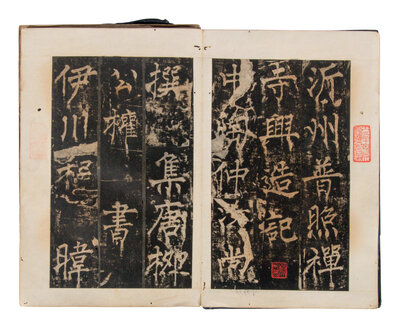 沂州普照禪
寺興造記
仲汝尚
撰 集唐柳
公權 書
伊川